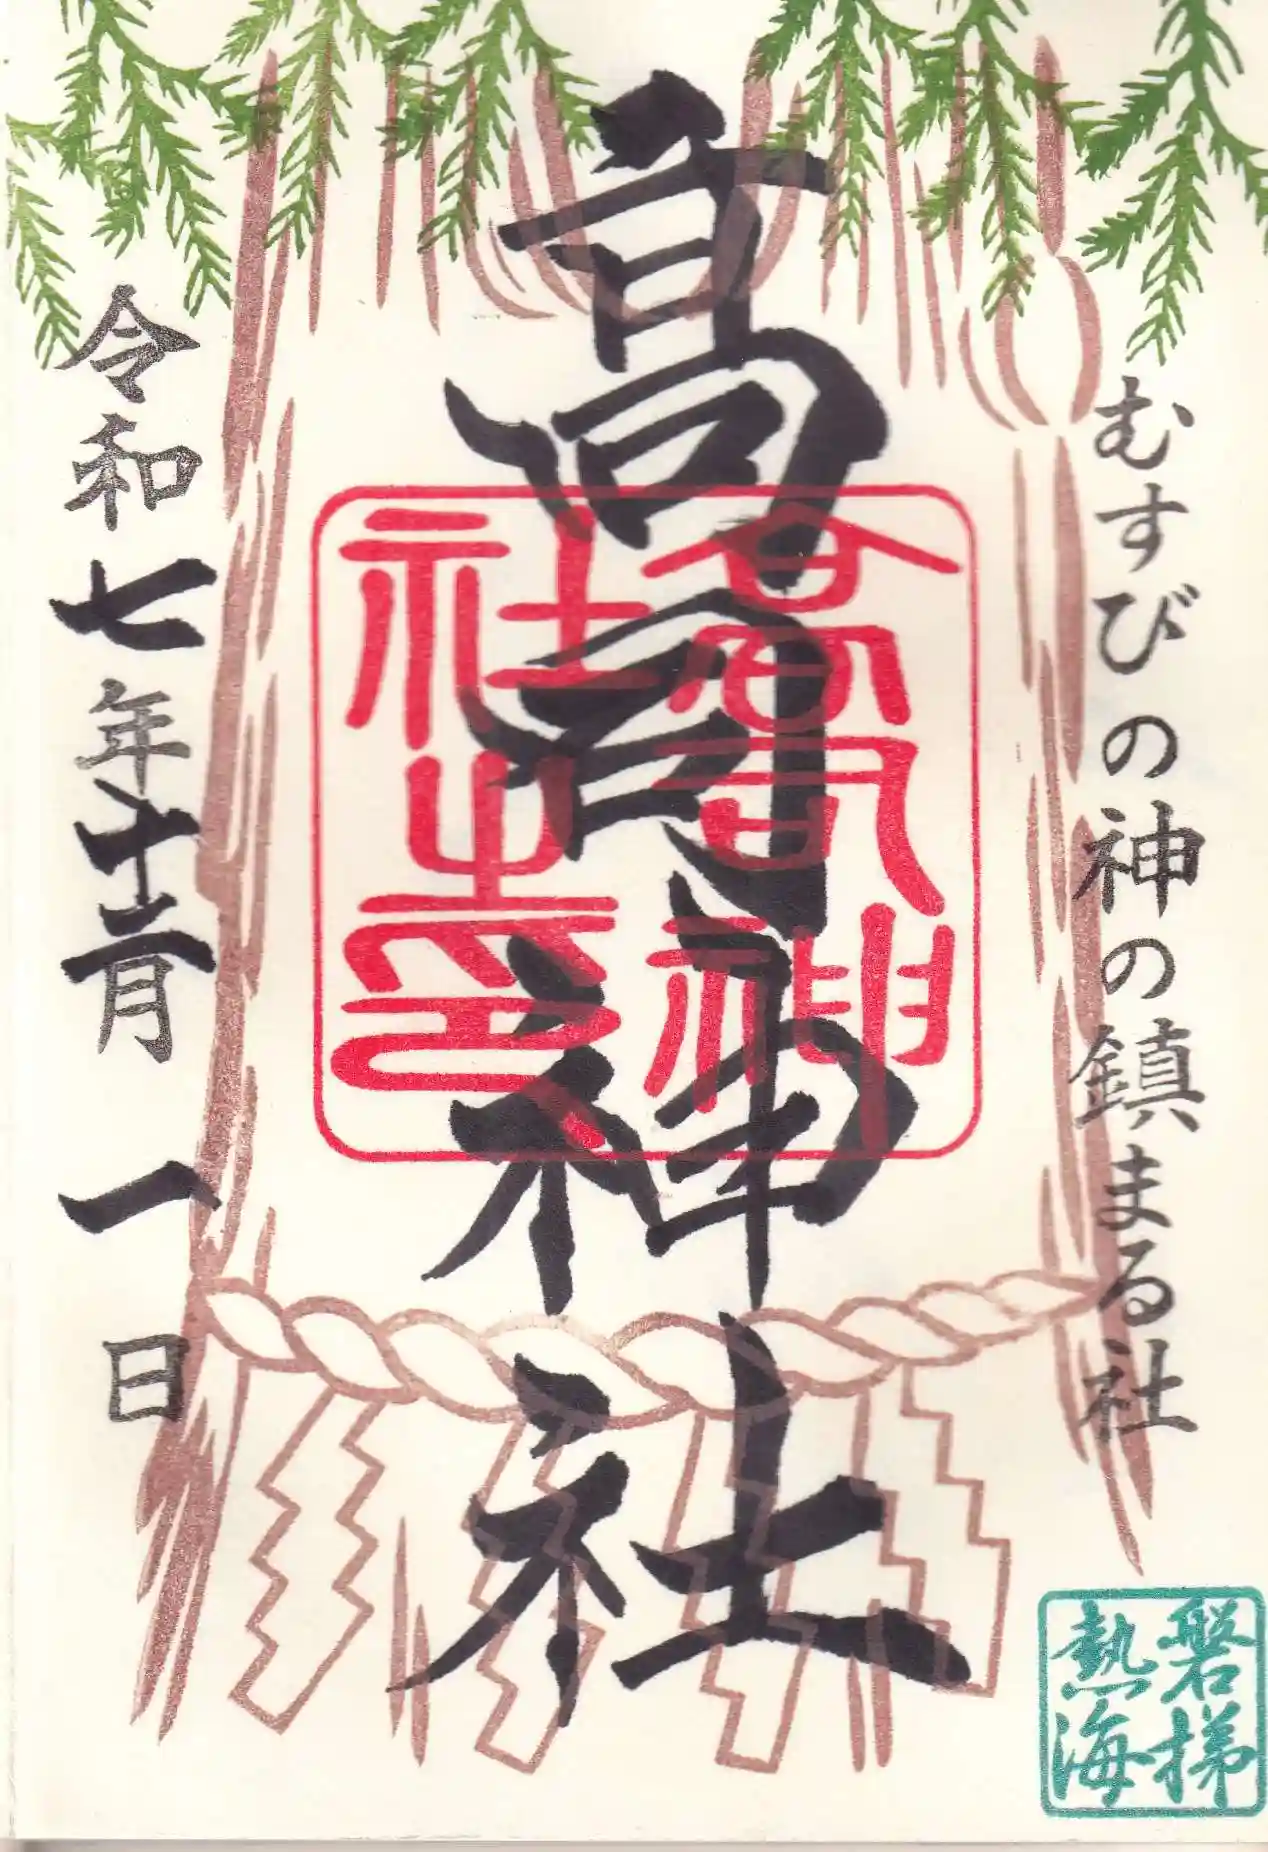 むすびの神の鎮まる社
磐梯
熱海
高司神社
高司神
社之印
令和七年十二月一日